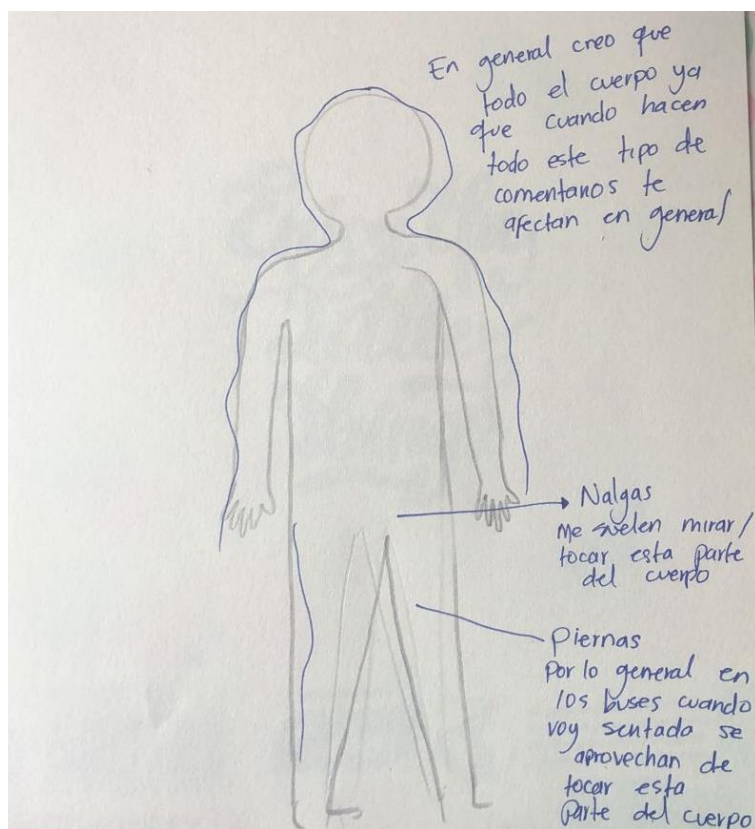 En general creo que
todo el cuerpo ya
que cuando hacen
todo este tipo de
comentarios te
afectan en general
Nalgas
Me suelen mirar/
tocar esta parte
del cuerpo
Piernas
Por lo general en
los buses cuando
voy sentada se
aprovechan de
tocar esta
parte del cuerpo